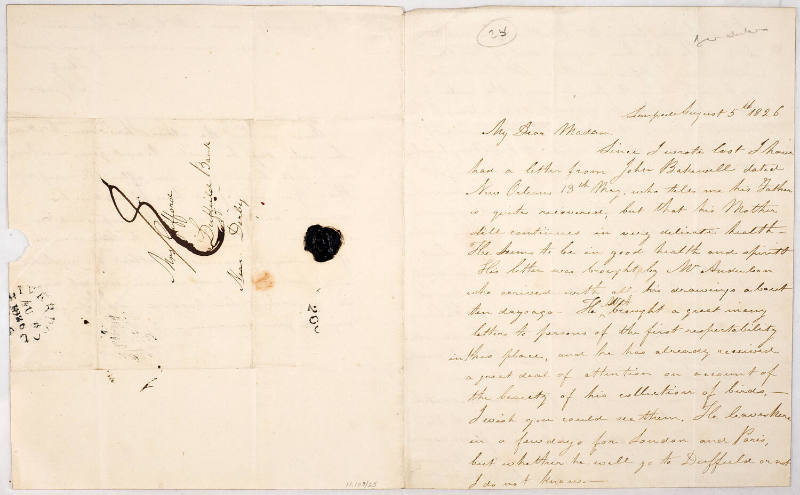 8
Mrs Gifford
Duffield Bank
Near Derby
208
24
Liverpool August 5th 1826
My Dear Madam
Since I wrote last I have
had a letter from John Bakewell dated
New Orleans 13th May, who tells me his Father
is quite recovered, but that his Mother
still continues in very delicate health—
He seems to be in good health and spirits
His letter was brought by Mr Audubon
who arrived with all his drawings about
ten days ago— He brought a great many
letters to persons of the first respectability
in this place, and he has already received
a great deal of attention on account of
the beauty of his collection of birds,—
I wish you could see them. He leaves here
in a few days for London and Paris,
but whether he will go to Duffield or not
I do not know.—
11.109/25